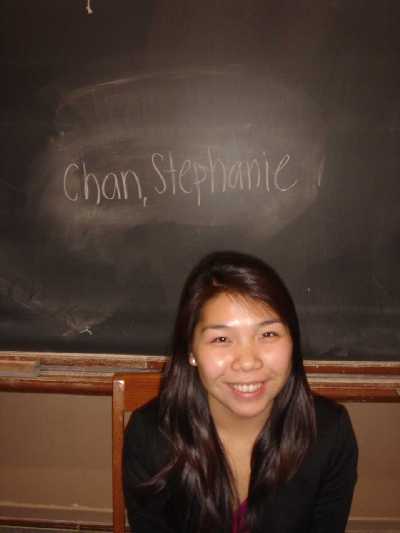 Chan, Stephanie